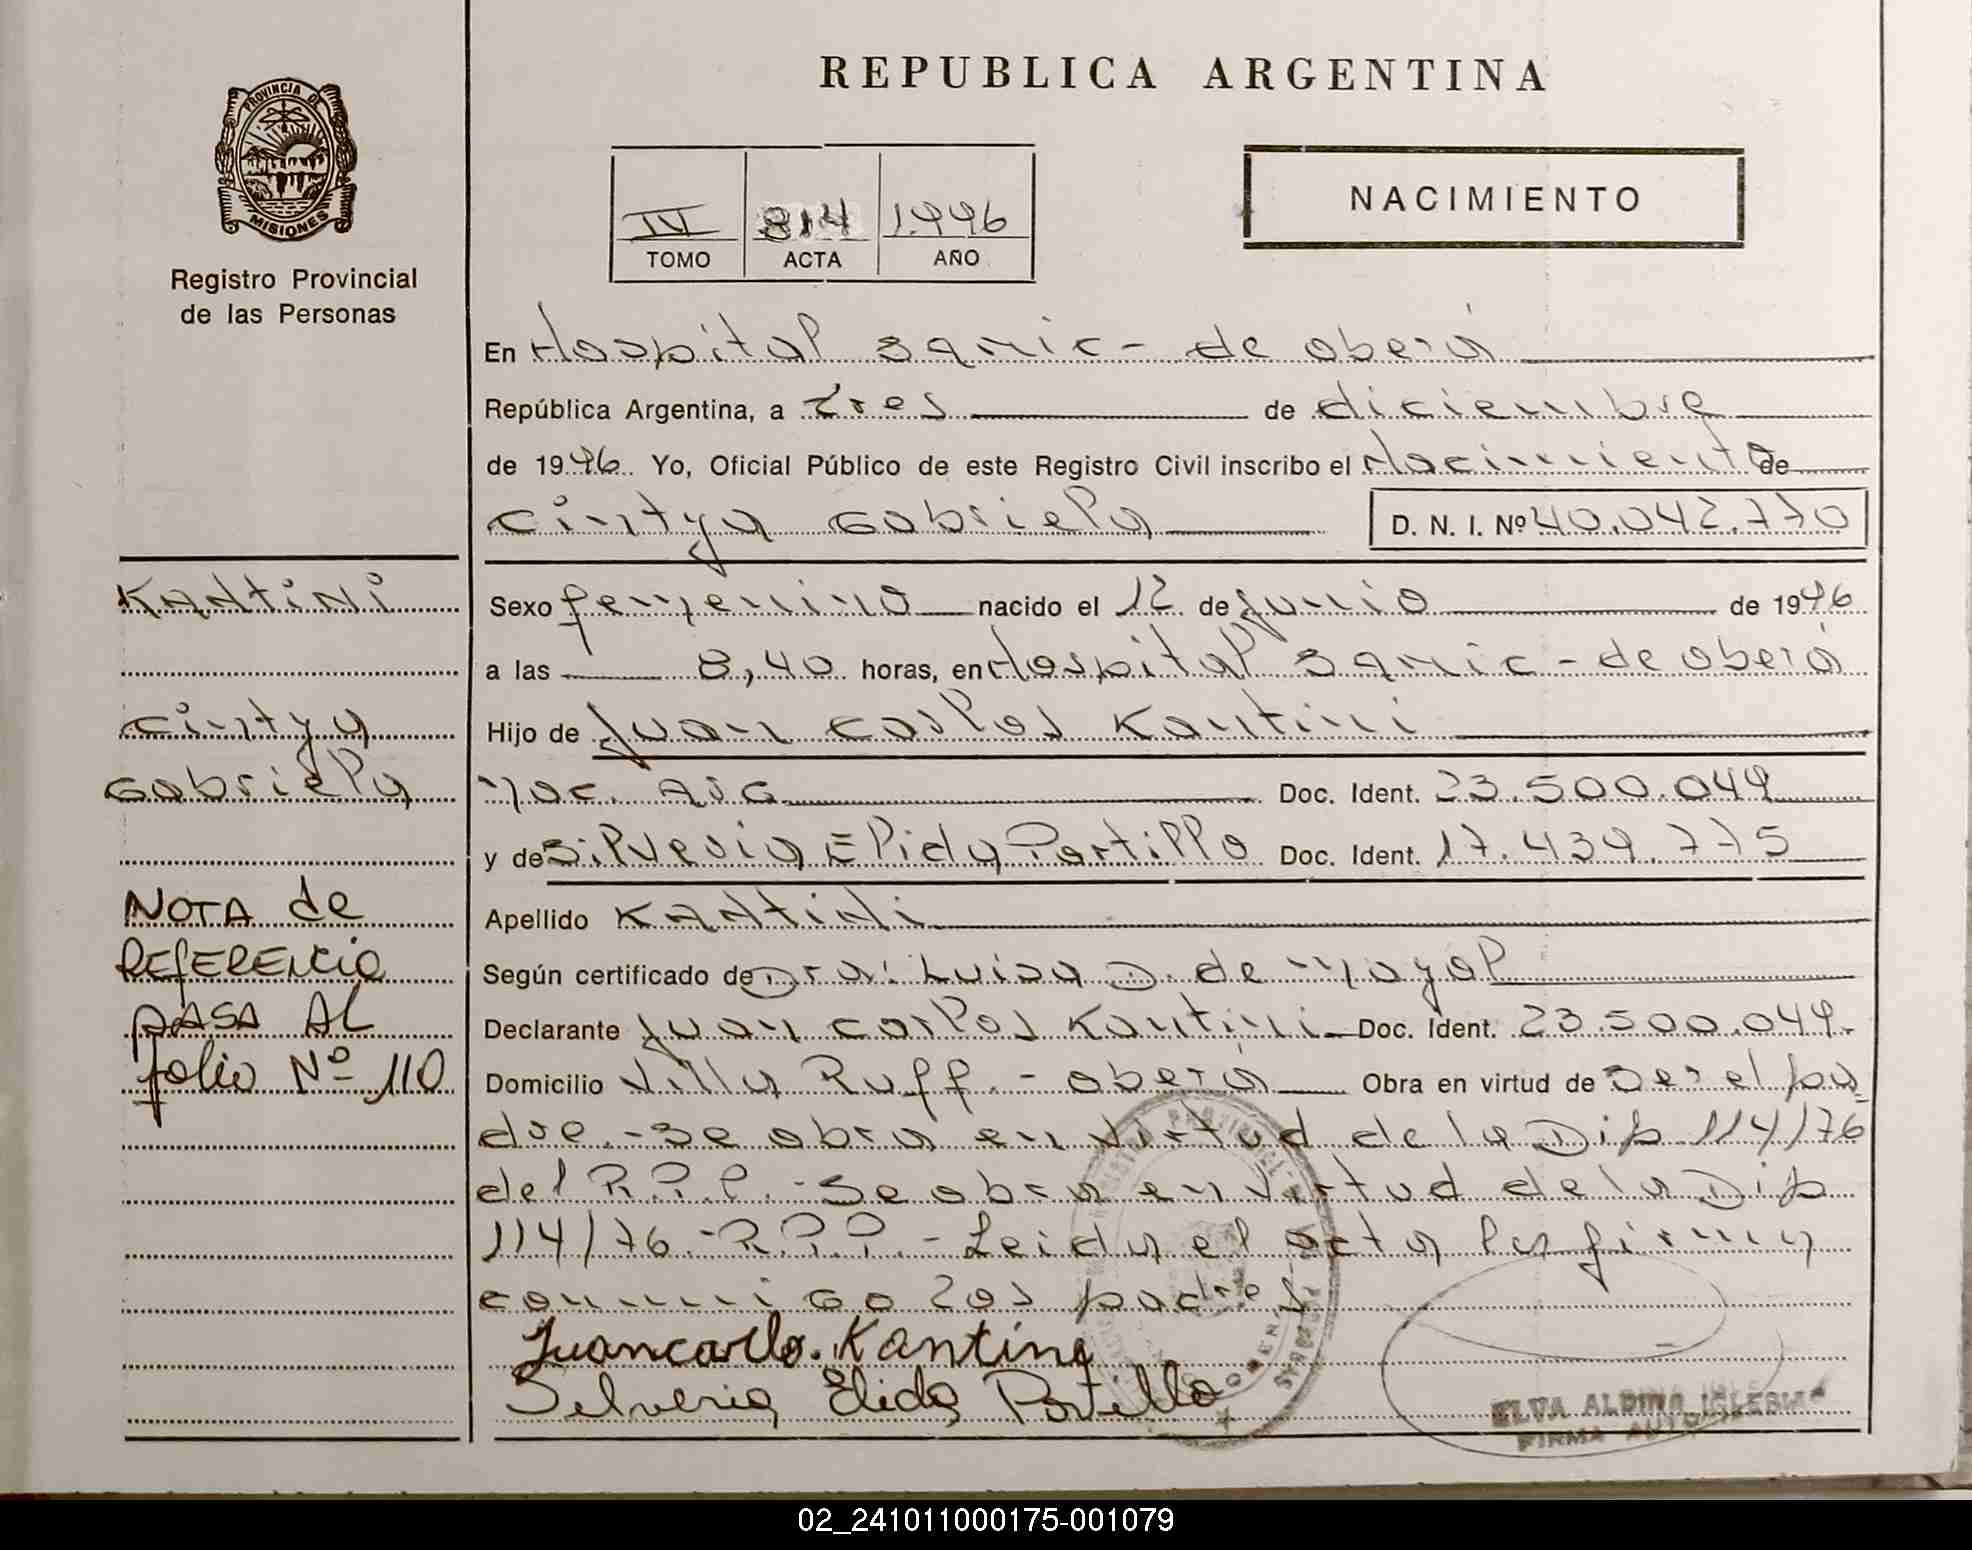 REPUBLICA ARGENTINA
PROVINCIA DE
MISIONES
Registro Provincial
de las Personas
IV 814 1.996
TOMO ACTA AÑO
NACIMIENTO
En Hospital Samic - de oberá
República Argentina, a tres de diciembre
de 1996. Yo, Oficial Público de este Registro Civil inscribo el Nacimiento de
cintya Gabriela D. N. I. Nº 40.042.770
Kantini
cintya
Gabriela
NOTA de
REFERENCIA
PASA AL
folio Nº 110
Sexo femenino nacido el 12 de junio de 1996
a las 8,40 horas, en Hospital Samic - de oberá
Hijo de Juan Carlos Kantini
Nac. Arg Doc. Ident. 23.500.049
y de Silveria Elida Portillo Doc. Ident. 17.439.775
Apellido Kantini
Según certificado de Dra: Luisa D. de Mayol
Declarante Juan Carlos Kantini Doc. Ident. 23.500.049.
Domicilio Villa Ruff. - oberá Obra en virtud de Ser el pa
dre. - Se obra en virtud de la Dip 114/76
del R.P.P. - Se obra en virtud de la Dip
114/76 - R.P.P. - Leida el acta la firman
conmigo los padres
Juancarlo. Kantini
Silveria Elida Portillo
ELVA ALBINA IGLESIAS
FIRMA
02_241011000175-001079